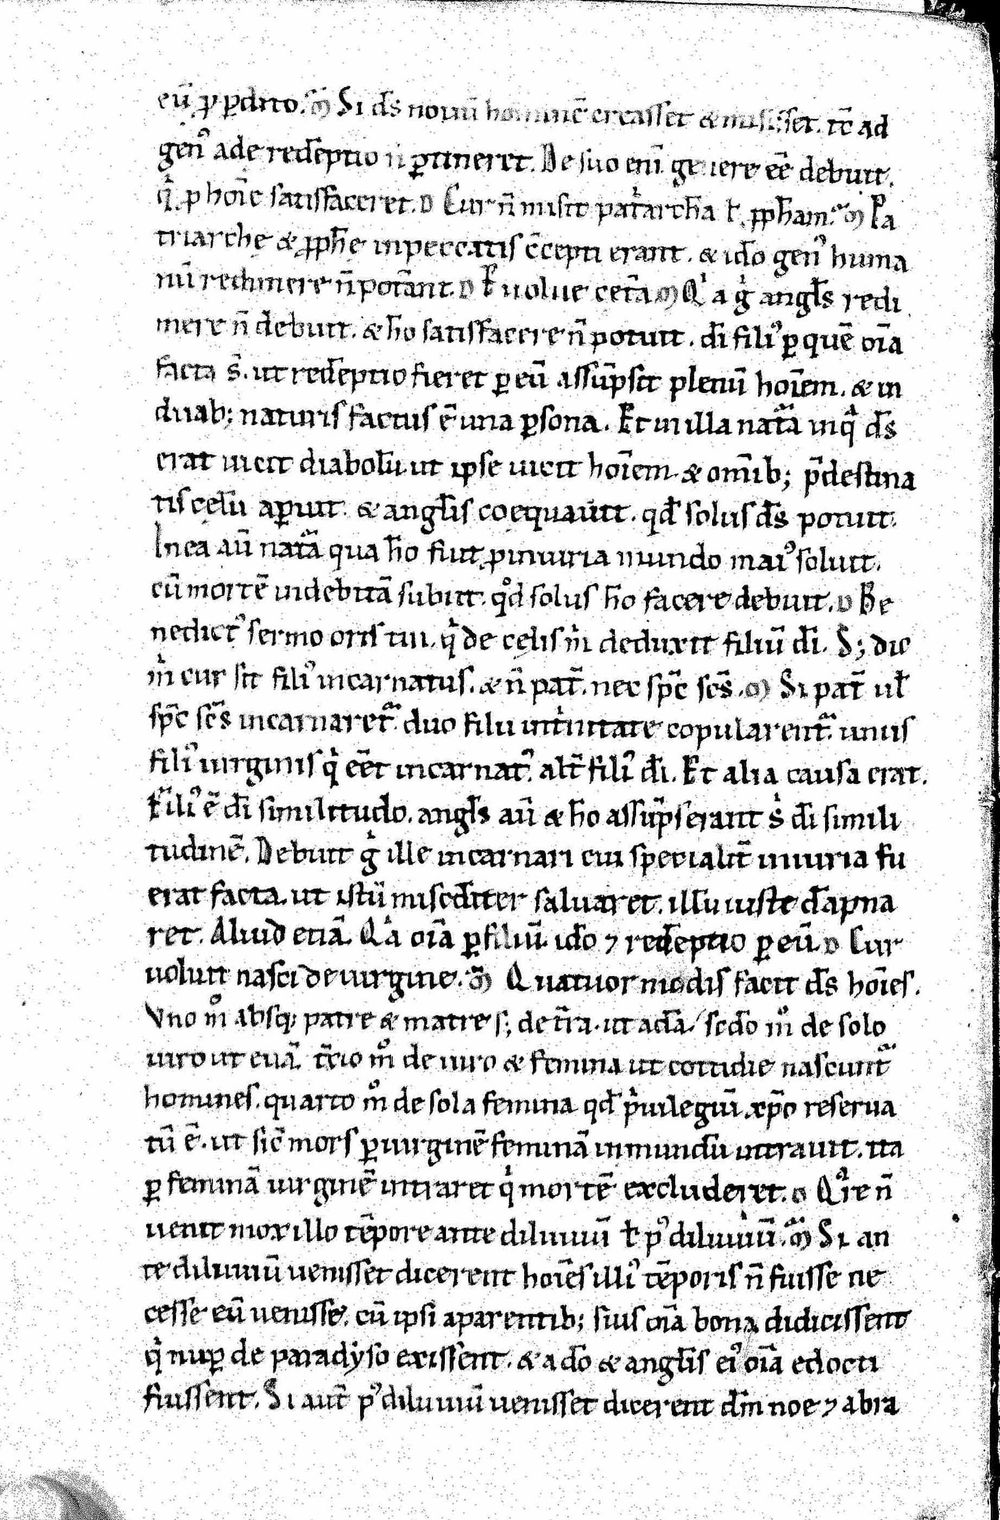 eū ꝓ ꝑdito. ᵯ Si ds̄ nouū hominē creasset & misisset. tc̄ ad
genꝰ ade redēptio n̄ ꝑtineret. De suo eni᷎ genere eē debuit.
qⁱ ꝓ hoīe satisfaceret. D Cur n̄ misit patⁱarch̄a ł ꝓpham̄. ᵯ Pa
triarche & ꝓph̄e in peccatis c̄cepti erant. & id̄o genꝰ huma
nū redimere n̄ potant̄. D Euolue cet̄a ᵯ Qⁱa gⁱ angl̄s redi
mere n̄ debuit. & h̄o satisfacere n̄ potuit. dī filiꝰ ꝑ quē oīa
facta s̄. ut redēptio fieret ꝑ eū assūpsit plenū hoīem. & in
duab; naturis factus ē una ꝑsona. Et in illa nat̄a in qᵃ ds̄
erat uicit diabolū ut ipse uicit hoīem & omīb; p̄destina
tis celū aꝑuit. & anglīs coequauit̄. qd̄ solus ds̄ potuit.
In ea aū nat̄a qua h̄o fuit ꝓ iniuria mundo maiꝰ soluit.
cū mortē indebitā subiit. qᵒd solus h̄o facere debuit. D Be
nedictꝰ sermo oris tui. qⁱ de celis mⁱ deduxit filiū dī. S; dic
mⁱ cur sit filiꝰ incarnatus. & n̄ pat̄. nec sp̄c sc̄s. ᵯ Si pat̄ ul̄
sp̄c sc̄s incarnaretᷓ. duo filii intⁱnitate copularentᷓ. unus
filiꝰ uirginis qⁱ eēt incarnatꝰ. alt̄ filiꝰ dī. Et alia causa erat.
Filiꝰ ē dī similitudo. angl̄s aū & h̄o assūpserant sⁱ dī simili
tudinē. Debuit gⁱ ille incarnari cui specialit̄ iniuria fu
erat facta. ut istū misc̄diter saluaret. illū iuste dāpna
ret. Aliud etiā. Qⁱa oīa ꝑ filiū. id̄o ⁊ redēptio ꝑ eū. D Cur
uoluit nasci de uirgine. ᵯ Quatuor modis facit ds̄ hoīes.
Vno mᵒ absq; patre & matre s; de t̄ra. ut adā / sed̄o mᵒ de solo
uiro ut euā. t̄cio mᵒ de uiro & femina ut cottidie nascuntᷓ
homines. quarto mᵒ de sola femina qd̄ pⁱuilegiū xp̄o reserua
tū ē. ut sic̄ mors ꝑ uirginē feminā in mundū intrauit. ita
ꝑ feminā uirginē intraret qⁱ mortē excluderet. D Qᵃre n̄
uenit mox illo tēpore ante diluuiū ł pꝰ diluuiū. ᵯ Si an
te diluuiū uenisset dicerent hoīes illiꝰ tēporis n̄ fuisse ne
cesse eū uenisse. cū ipsi a parentib; suis oīa bona didicissent
qⁱ nuꝑ de paradyso exissent. & a do & anglīs eiꝰ oīa edocti
fuissent. Si aut̄ pꝰ diluuiū uenisset dicerent dm̄ noe ⁊ abra